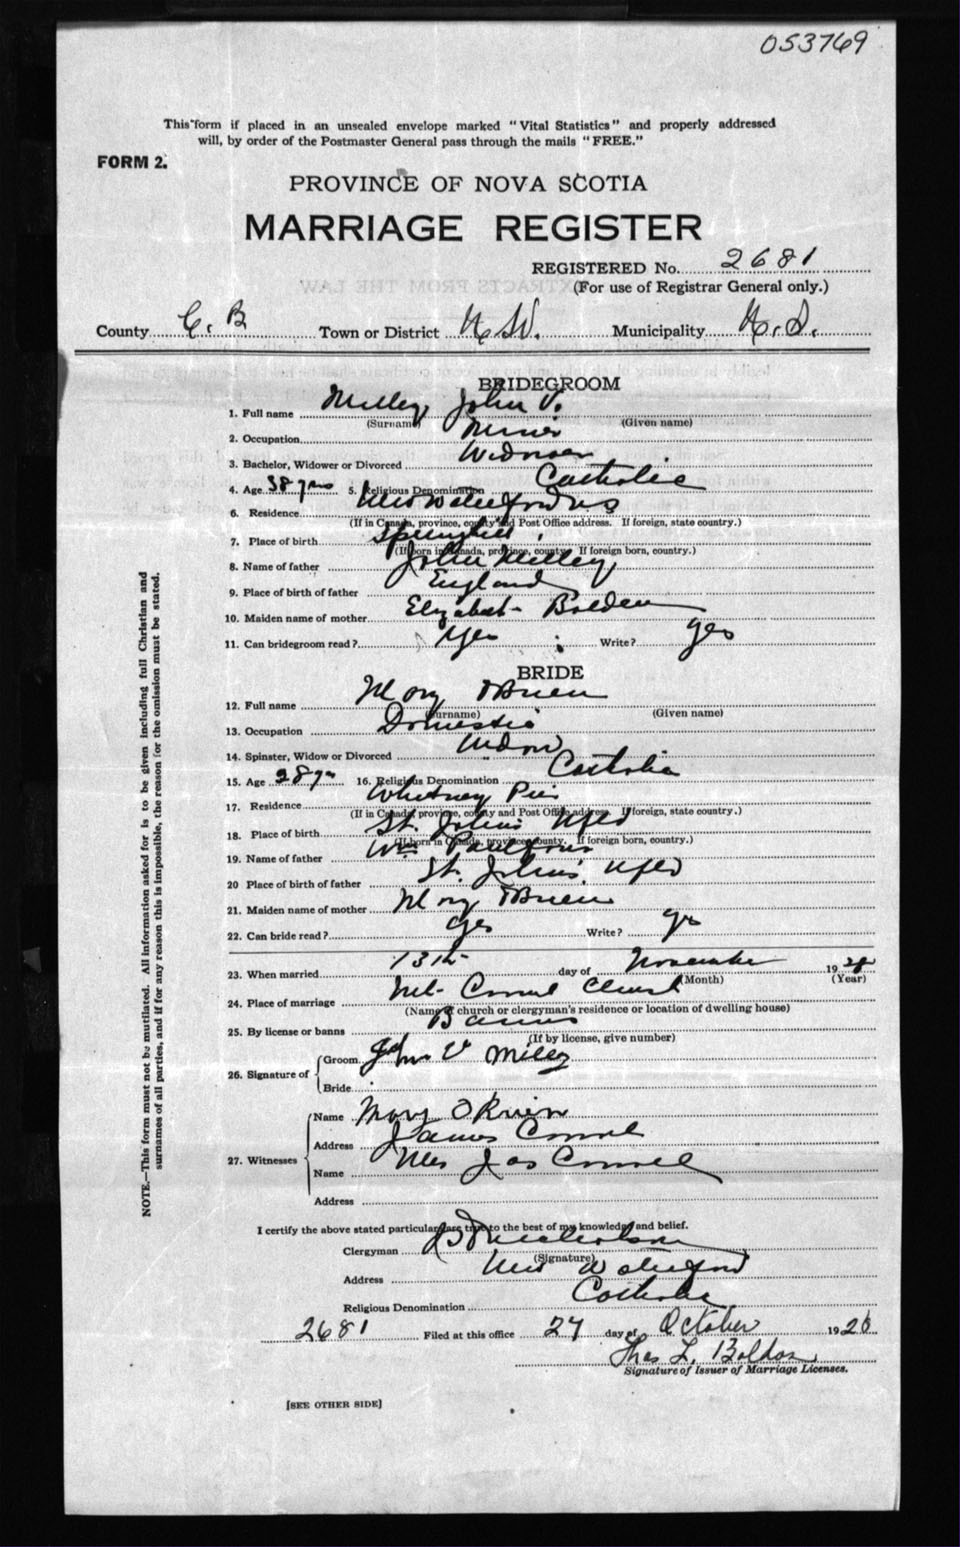 053769
This form if placed in an unsealed envelope marked "Vital Statistics" and properly addressed
will, by order of the Postmaster General pass through the mails "FREE."
FORM 2.
PROVINCE OF NOVA SCOTIA
MARRIAGE REGISTER
REGISTERED No. 2681
(For use of Registrar General only.)
County C. B Town or District N. W. Municipality
BRIDEGROOM
1. Full name Milley John V.
(Surname) (Given name)
2. Occupation Miner
3. Bachelor, Widower or Divorced Widower
4. Age 38 yrs 5. Religious Denomination Catholic
6. Residence New Waterford NS
(If in Canada, province, county and Post Office address. If foreign, state country.)
7. Place of birth Springhill
(If born in Canada, province, county. If foreign born, country.)
8. Name of father John Milley
9. Place of birth of father England
10. Maiden name of mother Elizabeth
11. Can bridegroom read? Yes Write? yes
BRIDE
12. Full name Mary OBrien
(Surname) (Given name)
13. Occupation Domestic
14. Spinster, Widow or Divorced Widow
15. Age 28 yr 16. Religious Denomination Catholic
17. Residence Whitney Pier
(If in Canada, province, county and Post Office address. If foreign, state country.)
18. Place of birth St. Johns Nfld
(If born in Canada, province, county. If foreign born, country.)
19. Name of father Wm
20 Place of birth of father St. Johns, Nfld
21. Maiden name of mother Mary OBrien
22. Can bride read? yes Write? yes
23. When married 13th day of November 1928
(Month) (Year)
24. Place of marriage Mt. Carmel Church
(Name of church or clergyman's residence or location of dwelling house)
25. By license or banns Banns
(If by license, give number)
26. Signature of Groom John V Milley
Bride
27. Witnesses Name Mary OBrien
Address James
Name Mrs Jas
Address
I certify the above stated particulars are true to the best of my knowledge and belief.
Clergyman
(Signature)
Address New Waterford
Religious Denomination Catholic
2681 Filed at this office 27 day of October 1926
Thos L. Boldon
Signature of Issuer of Marriage Licenses.
[SEE OTHER SIDE]
NOTE.—This form must not be mutilated. All information asked for is to be given including full Christian and
surnames of all parties, and if for any reason this is impossible, the reason for the omission must be stated.